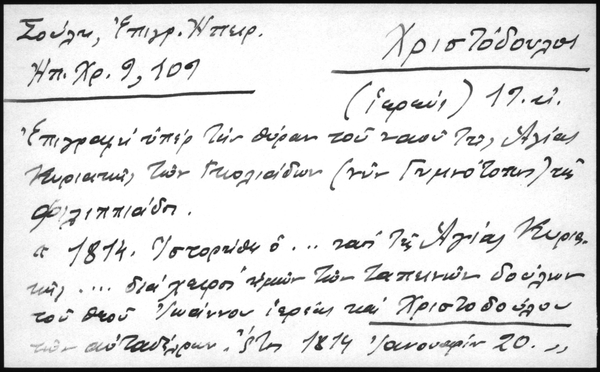 Σούλη, Ἐπιγρ. Ἠπείρ.
Χριστόδουλος
Ἠπ. Χρ. 9, 109
(ἱερεύς) 19. αἰ.
Ἐπιγραφὴ ὑπὲρ τὴν θύραν τοῦ ναοῦ τῆς Ἁγίας
Κυριακῆς τῶν Γκολιάδων (νῦν Γυμνότοπος) τῆς
Φιλιππιάδος.
« 1814. Ἱστορήθη ὁ ... ναὸς τῆς Ἁγίας Κυρια-
κῆς .... διὰ χειρὸς ἡμῶν τῶν ταπεινῶν δούλων
τοῦ θεοῦ Ἰωάννου ἱερέως καὶ Χριστοδούλου
τῶν αὐταδέλφων. Ἔτος 1814 Ἰανουαρίου 20. »